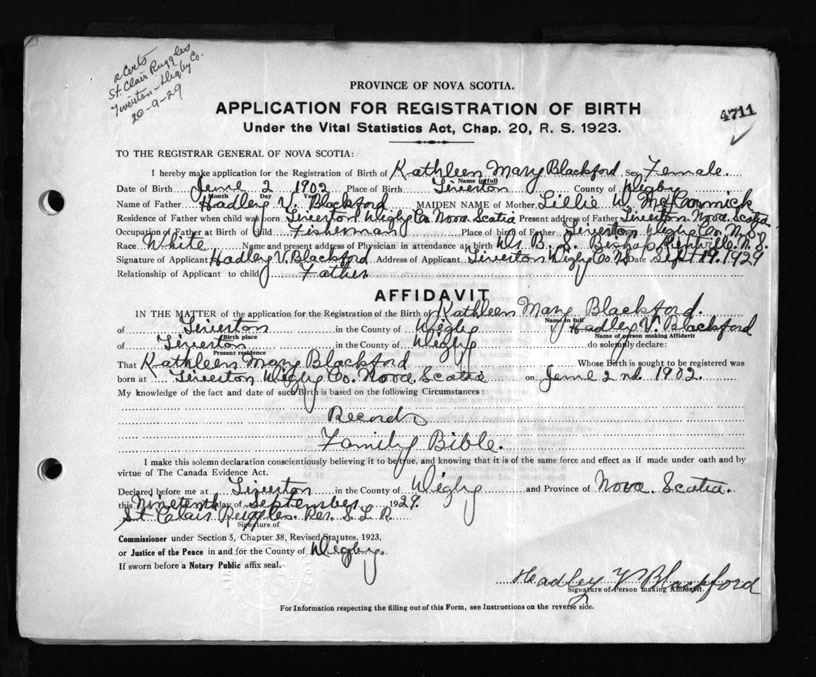 2 Certs
St. Clair Ruggles
Tiverton - Digby Co.
20-9-29
PROVINCE OF NOVA SCOTIA.
APPLICATION FOR REGISTRATION OF BIRTH
4711
Under the Vital Statistics Act, Chap. 20, R. S. 1923.
TO THE REGISTRAR GENERAL OF NOVA SCOTIA:
I hereby make application for the Registration of Birth of Kathleen Mary Blackford Sex Female.
Name in full
Date of Birth June 2 1902 Place of Birth Tiverton County of Digby
Month Day Year
Name of Father Hadley V. Blackford MAIDEN NAME of Mother Lillie W. McCormick
Residence of Father when child was born Tiverton Digby Co. Nova Scotia Present address of Father Tiverton Nova Scotia
Occupation of Father at Birth of Child Fisherman Place of birth of Father Tiverton Digby Co. N.S.
Race White Name and present address of Physician in attendance at birth Dr. B. S. Bishop N.S.
Signature of Applicant Hadley V. Blackford Address of Applicant Tiverton Digby Co N.S Date Sept 19. 1929
Relationship of Applicant to child Father
AFFIDAVIT
IN THE MATTER of the application for the Registration of the Birth of Kathleen Mary Blackford.
Name in full
of Tiverton in the County of Digby I Hadley V. Blackford
Birth place Name of person making Affidavit
of Tiverton in the County of Digby do solemnly declare:
Present residence
That Kathleen Mary Blackford Whose Birth is sought to be registered was
born at Tiverton Digby Co. Nova Scotia on June 2nd. 1902.
My knowledge of the fact and date of such Birth is based on the following Circumstances:
Records
Family Bible.
I make this solemn declaration conscientiously believing it to be true, and knowing that it is of the same force and effect as if made under oath and by
virtue of The Canada Evidence Act.
Declared before me at Tiverton in the County of Digby and Province of Nova Scotia.
this Nineteenth day of September 1929.
St. Clair Ruggles.
Signature of
Commissioner under Section 5, Chapter 38, Revised Statutes, 1923,
or Justice of the Peace in and for the County of Digby.
If sworn before a Notary Public affix seal.
Hadley V Blackford
Signature of Person making Affidavit.
For Information respecting the filling out of this Form, see Instructions on the reverse side.